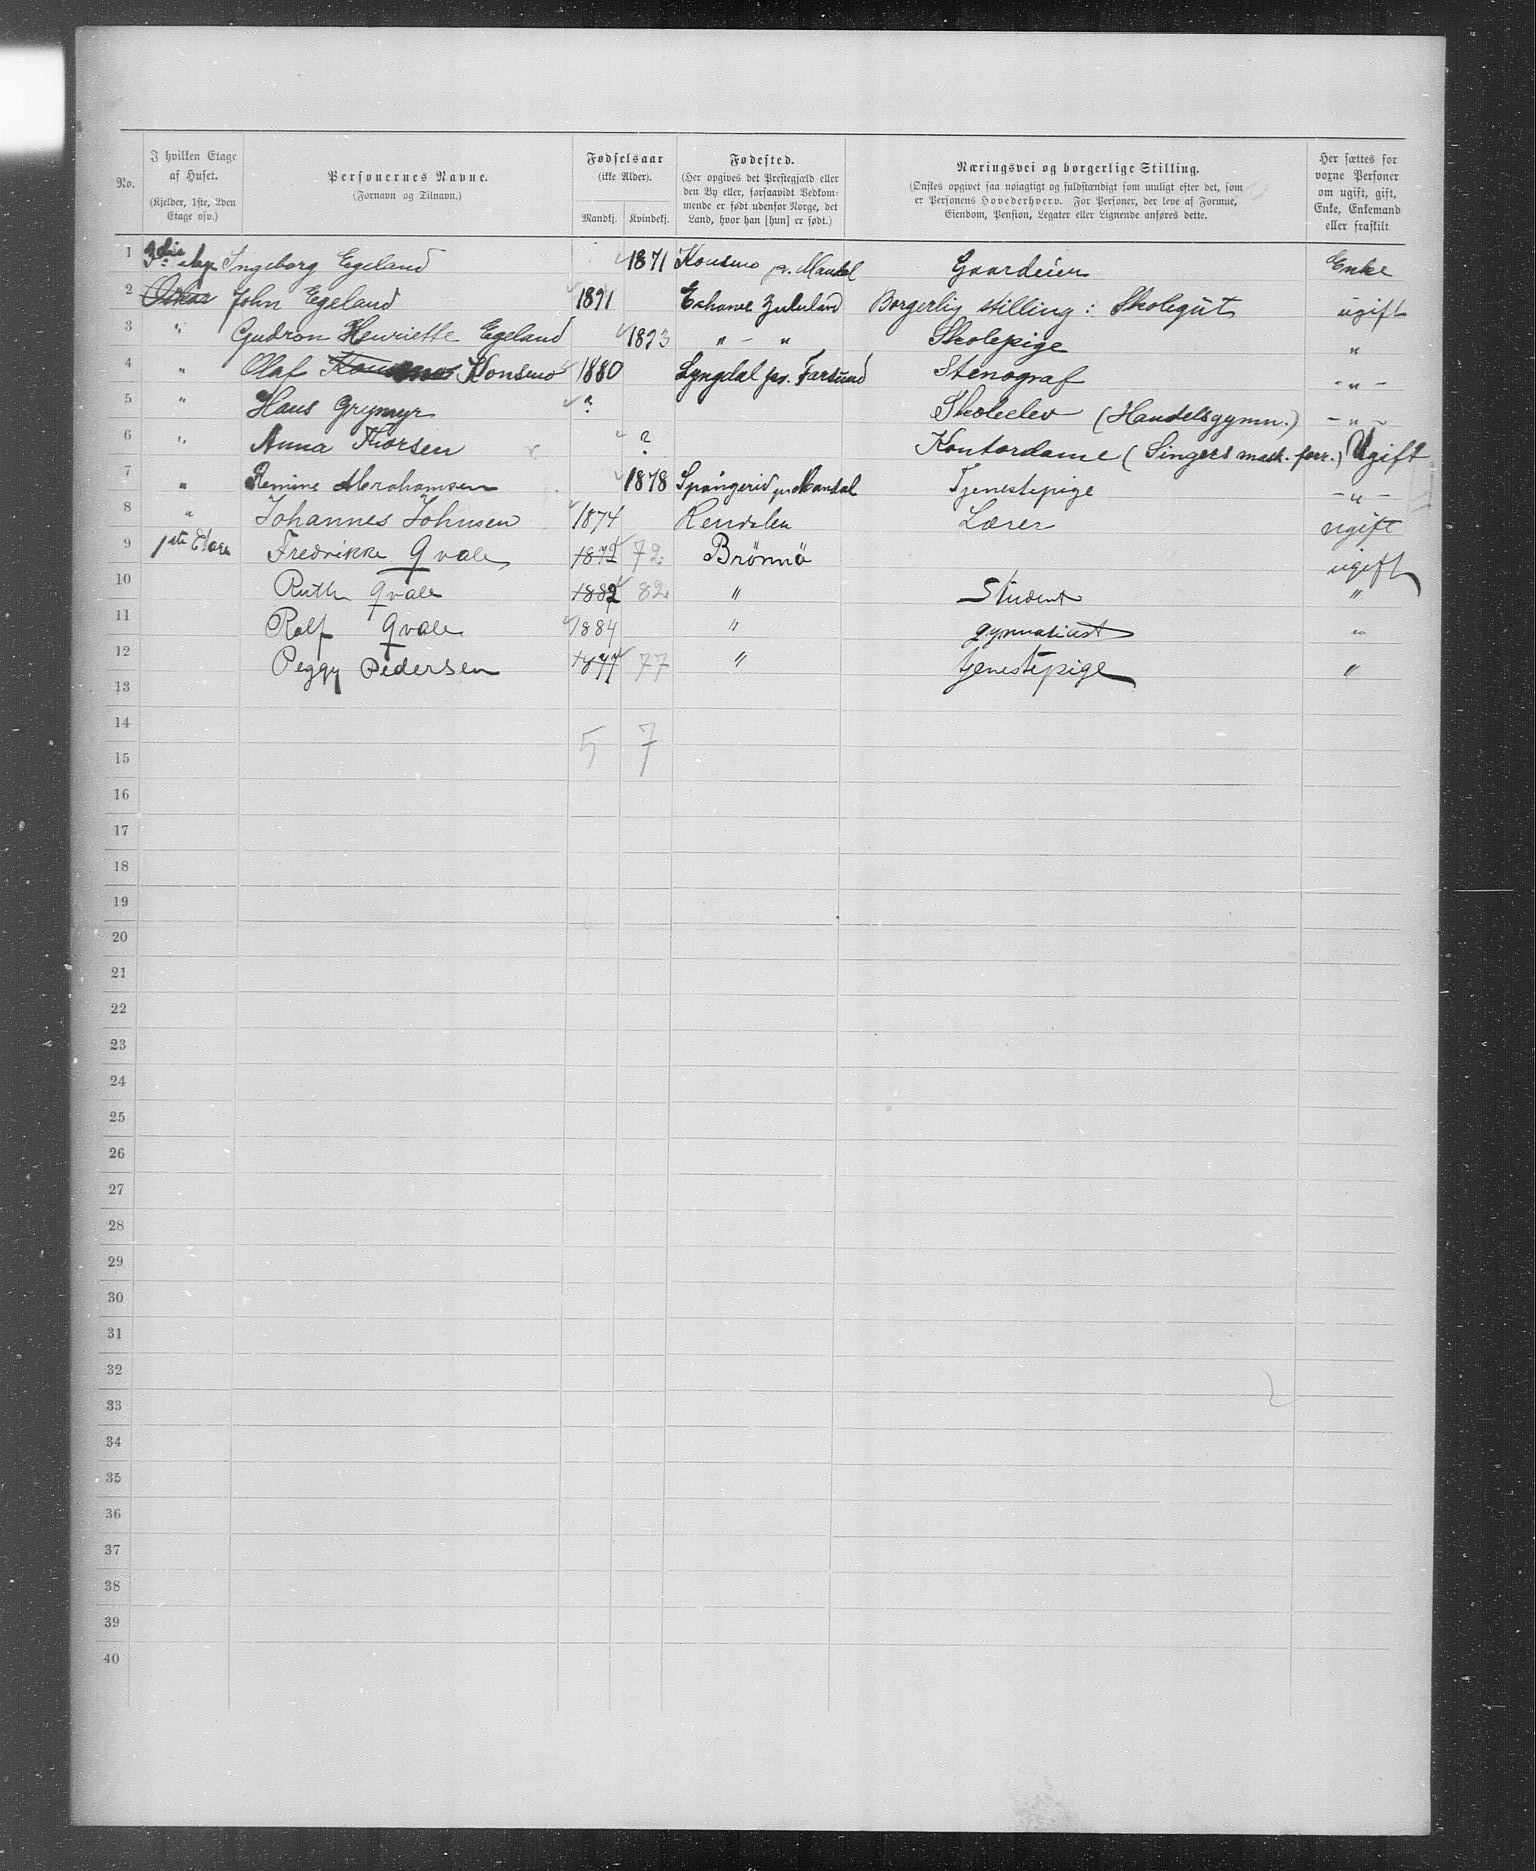 No. | I hvilken Etage af Huset. (Kjelder, 1ste, 2den Etage osv.) | Personernes Navne. (Fornavn og Tilnavn.) | Fødselsaar (ikke Alder). Mandkj. Kvindekj. | Fødested. (Her opgives det Prestegjæld eller den By eller, forsaavidt Vedkommende er født udenfor Norge, det Land, hvor han [hun] er født.) | Næringsvei og borgerlige Stilling. (Ønskes opgivet saa nøiagtigt og fuldstændigt som muligt efter det, som er Personens Hovederhverv. For Personer, der leve af Formue, Eiendom, Pension, Legater eller Lignende anføres dette. | Her sættes for vorne Personer om ugift, gift, Enke, Enkemand eller fraskilt
1 3die Ingeborg Egeland 1871 Konsmo pr. Mandal Gaardeier Enke
2 John Egeland 1891 Eshowe Zululand Borgerlig stilling: Skolegut ugift
3 " Gudron Henriette Egeland 1893 " - " Skolepige "
4 " Olaf Konsmo 1880 Lyngdal pr. Farsund Stenograf - " -
5 " Hans Grymyr ? Skoleelev (Handelsgymn.) - " -
6 " Anna Thorsen ? Kontordame (Singers mask. forr.) Ugift
7 " Remine Abrahamsen 1878 Spangerid pr Mandal Tjenestepige - " -
8 " Johannes Johnsen 1874 Rendalen Lærer ugift
9 1ste Etage Fredrikke Qvale 1872 72 Brönnö ugift
10 Ruth Qvale 1882 82 " Student "
11 Rolf Qvale 1884 " gymnasiast "
12 Peggy Pedersen 1877 77 " tjenestepige "
13
14
5 7
15
16
17
18
19
20
21
22
23
24
25
26
27
28
29
30
31
32
33
34
35
36
37
38
39
40